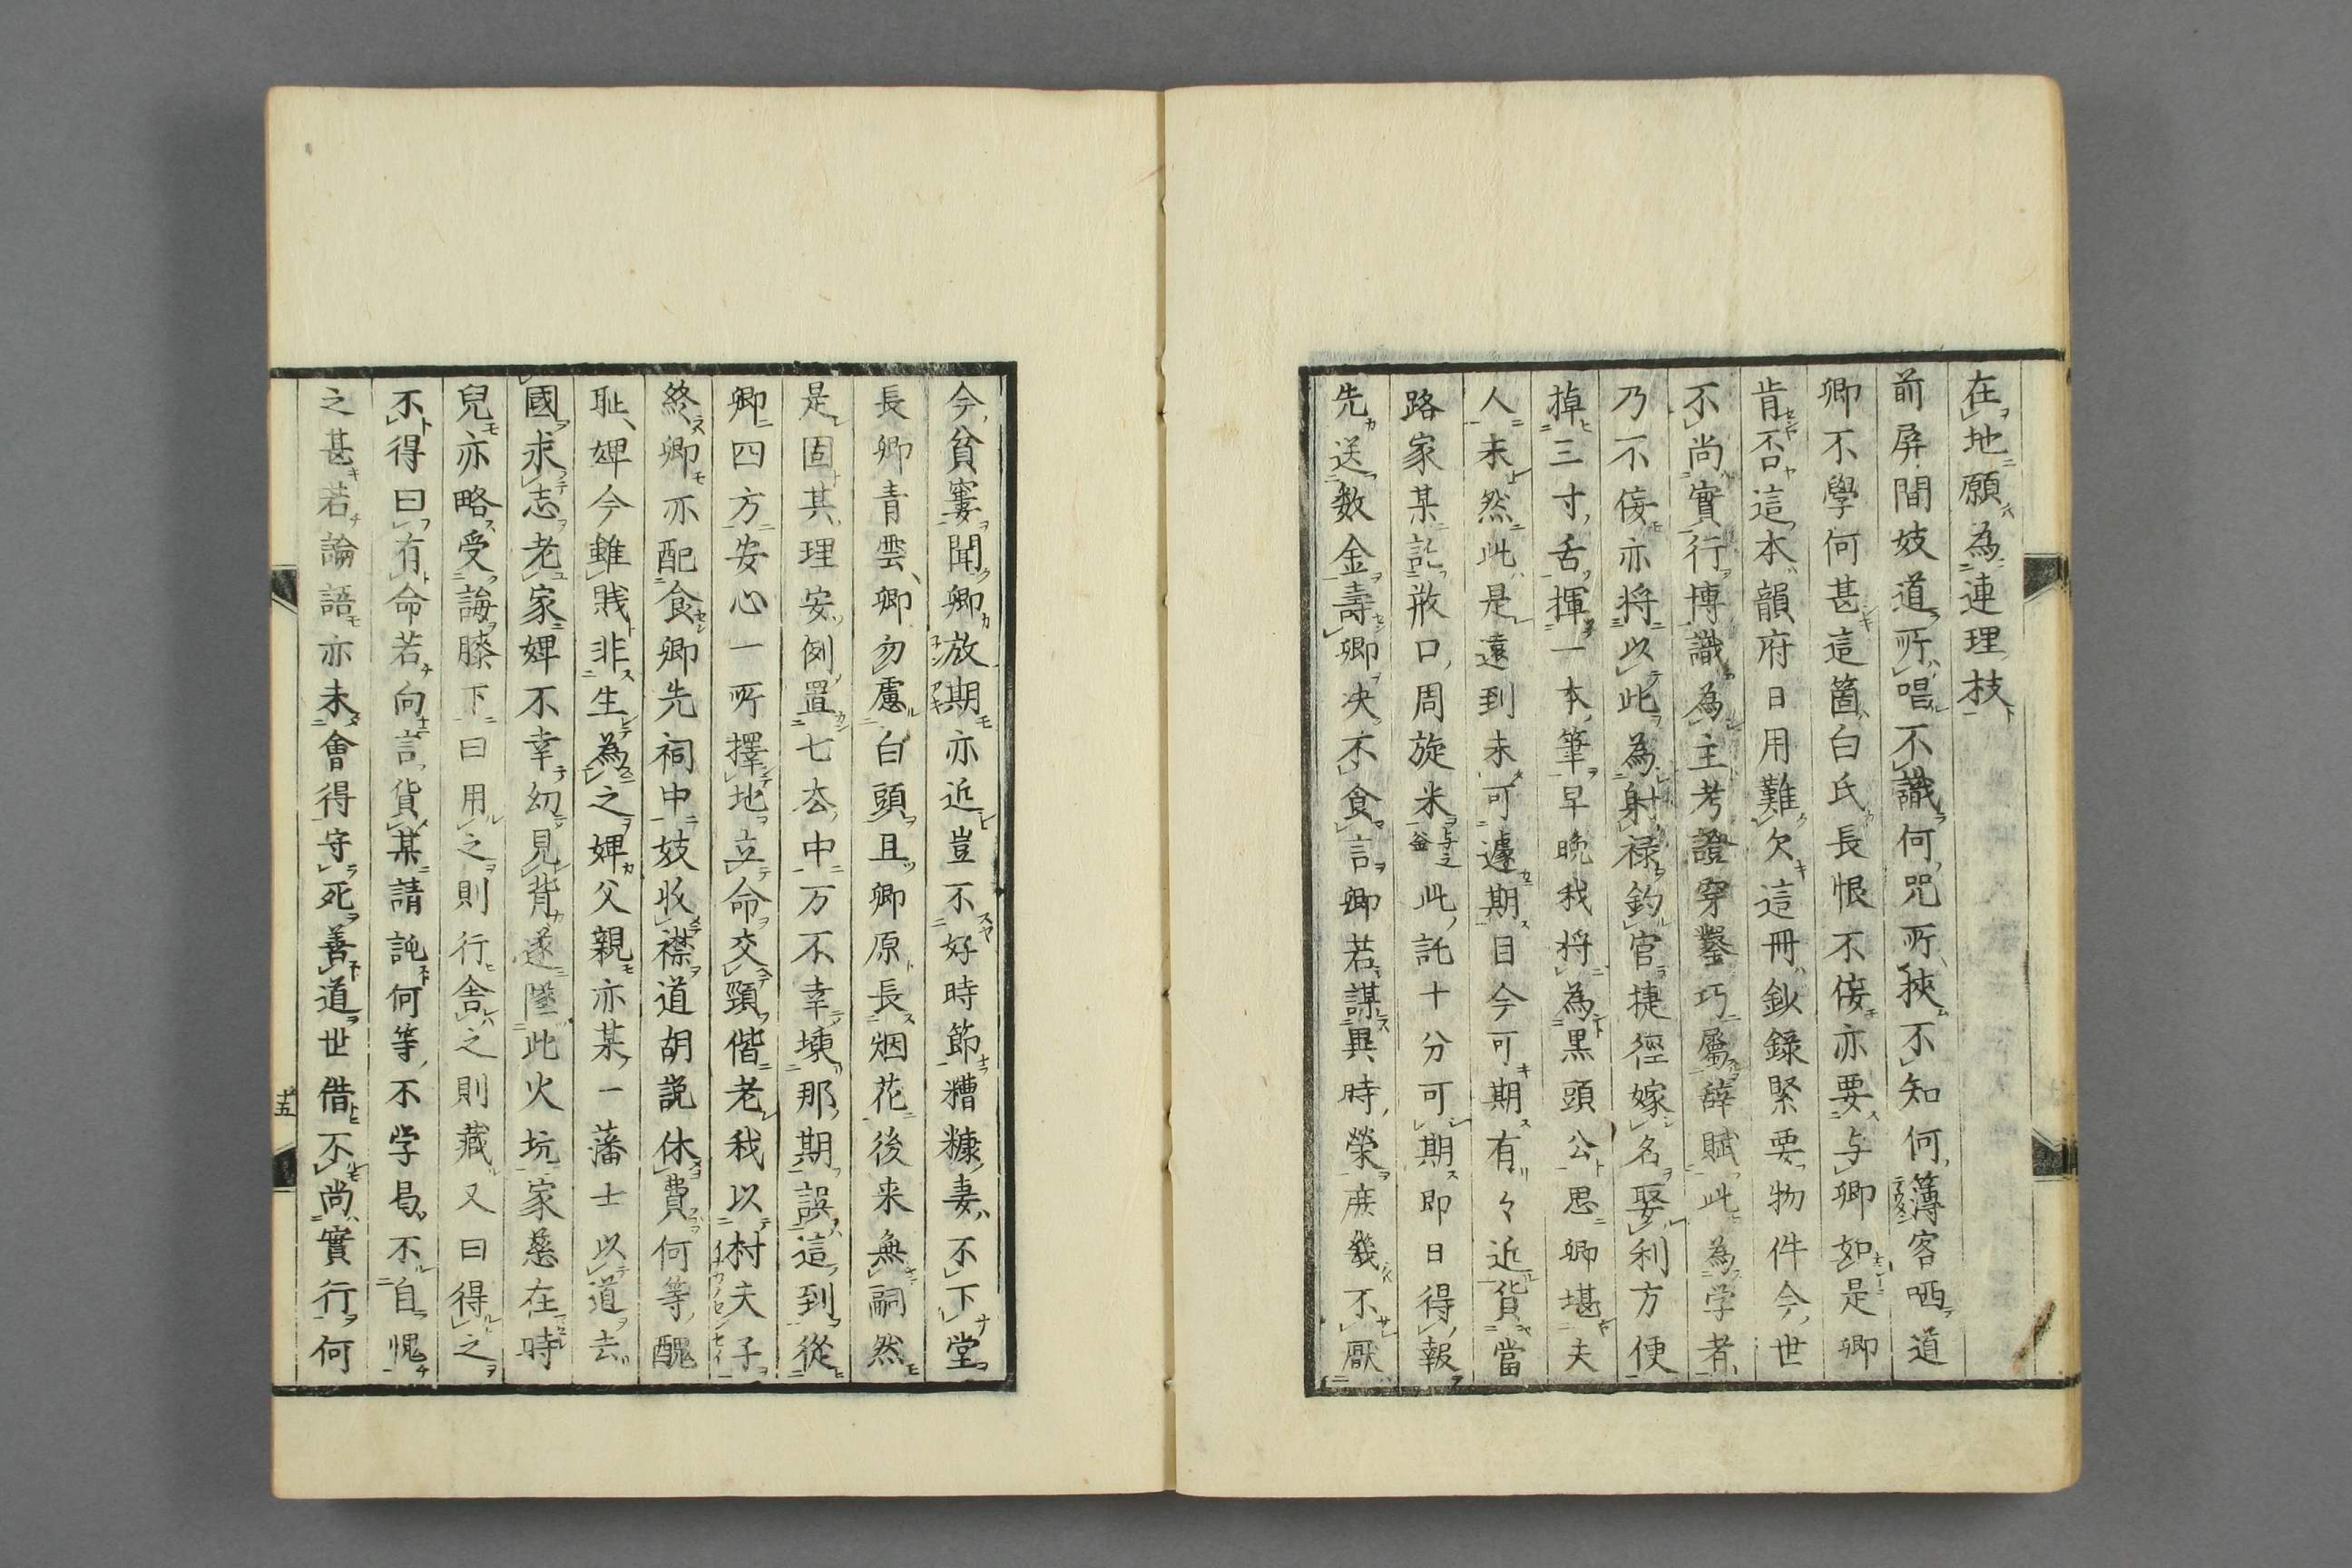 在地願為連理枝
前屏間妓道所唱不識何咒所狹不知何簿客哂道
卿不學何甚這箇白氏長恨不侫亦要与卿如是卿
肯否這本韻府日用難欠這冊鈔錄緊要物件今世
不尚實行博識為主考證穿鑿巧屬辭賦此為学者
乃不侫亦将以此為射禄釣官捷徑嫁名娶利方便
掉三寸舌揮一本筆早晚我将為黑頭公思卿堪夫
人未然此是遠到未可遽期目今可期有々近貨當
路家某託散口周旋米与之釜此託十分可期即日得報
先送数金壽卿决不食言卿若謀異時榮庶幾不厭
今貧窶聞卿放期亦近豈不好時節糟糠妻不下堂
長卿青雲卿勿慮白頭且卿原長烟花後来無嗣然
是固其理安例置七去中万不幸壊那期誤這到從
卿四方安心一所擇地立命交頸偕老我以村夫子
終卿亦配食卿先祠中妓收襟道胡説休費何等醜
耻婢今雖賎非生為之婢父親亦某一藩士以道去
國求志老家婢不幸幼見背遂墜此火坑家慈在時
兒亦略受誨膝下曰用之則行舍之則藏又曰得之
不得曰有命若向言貨某請託何等不学曷不自愧
之甚若論語亦未會得守死善道世借不尚實行何
十五